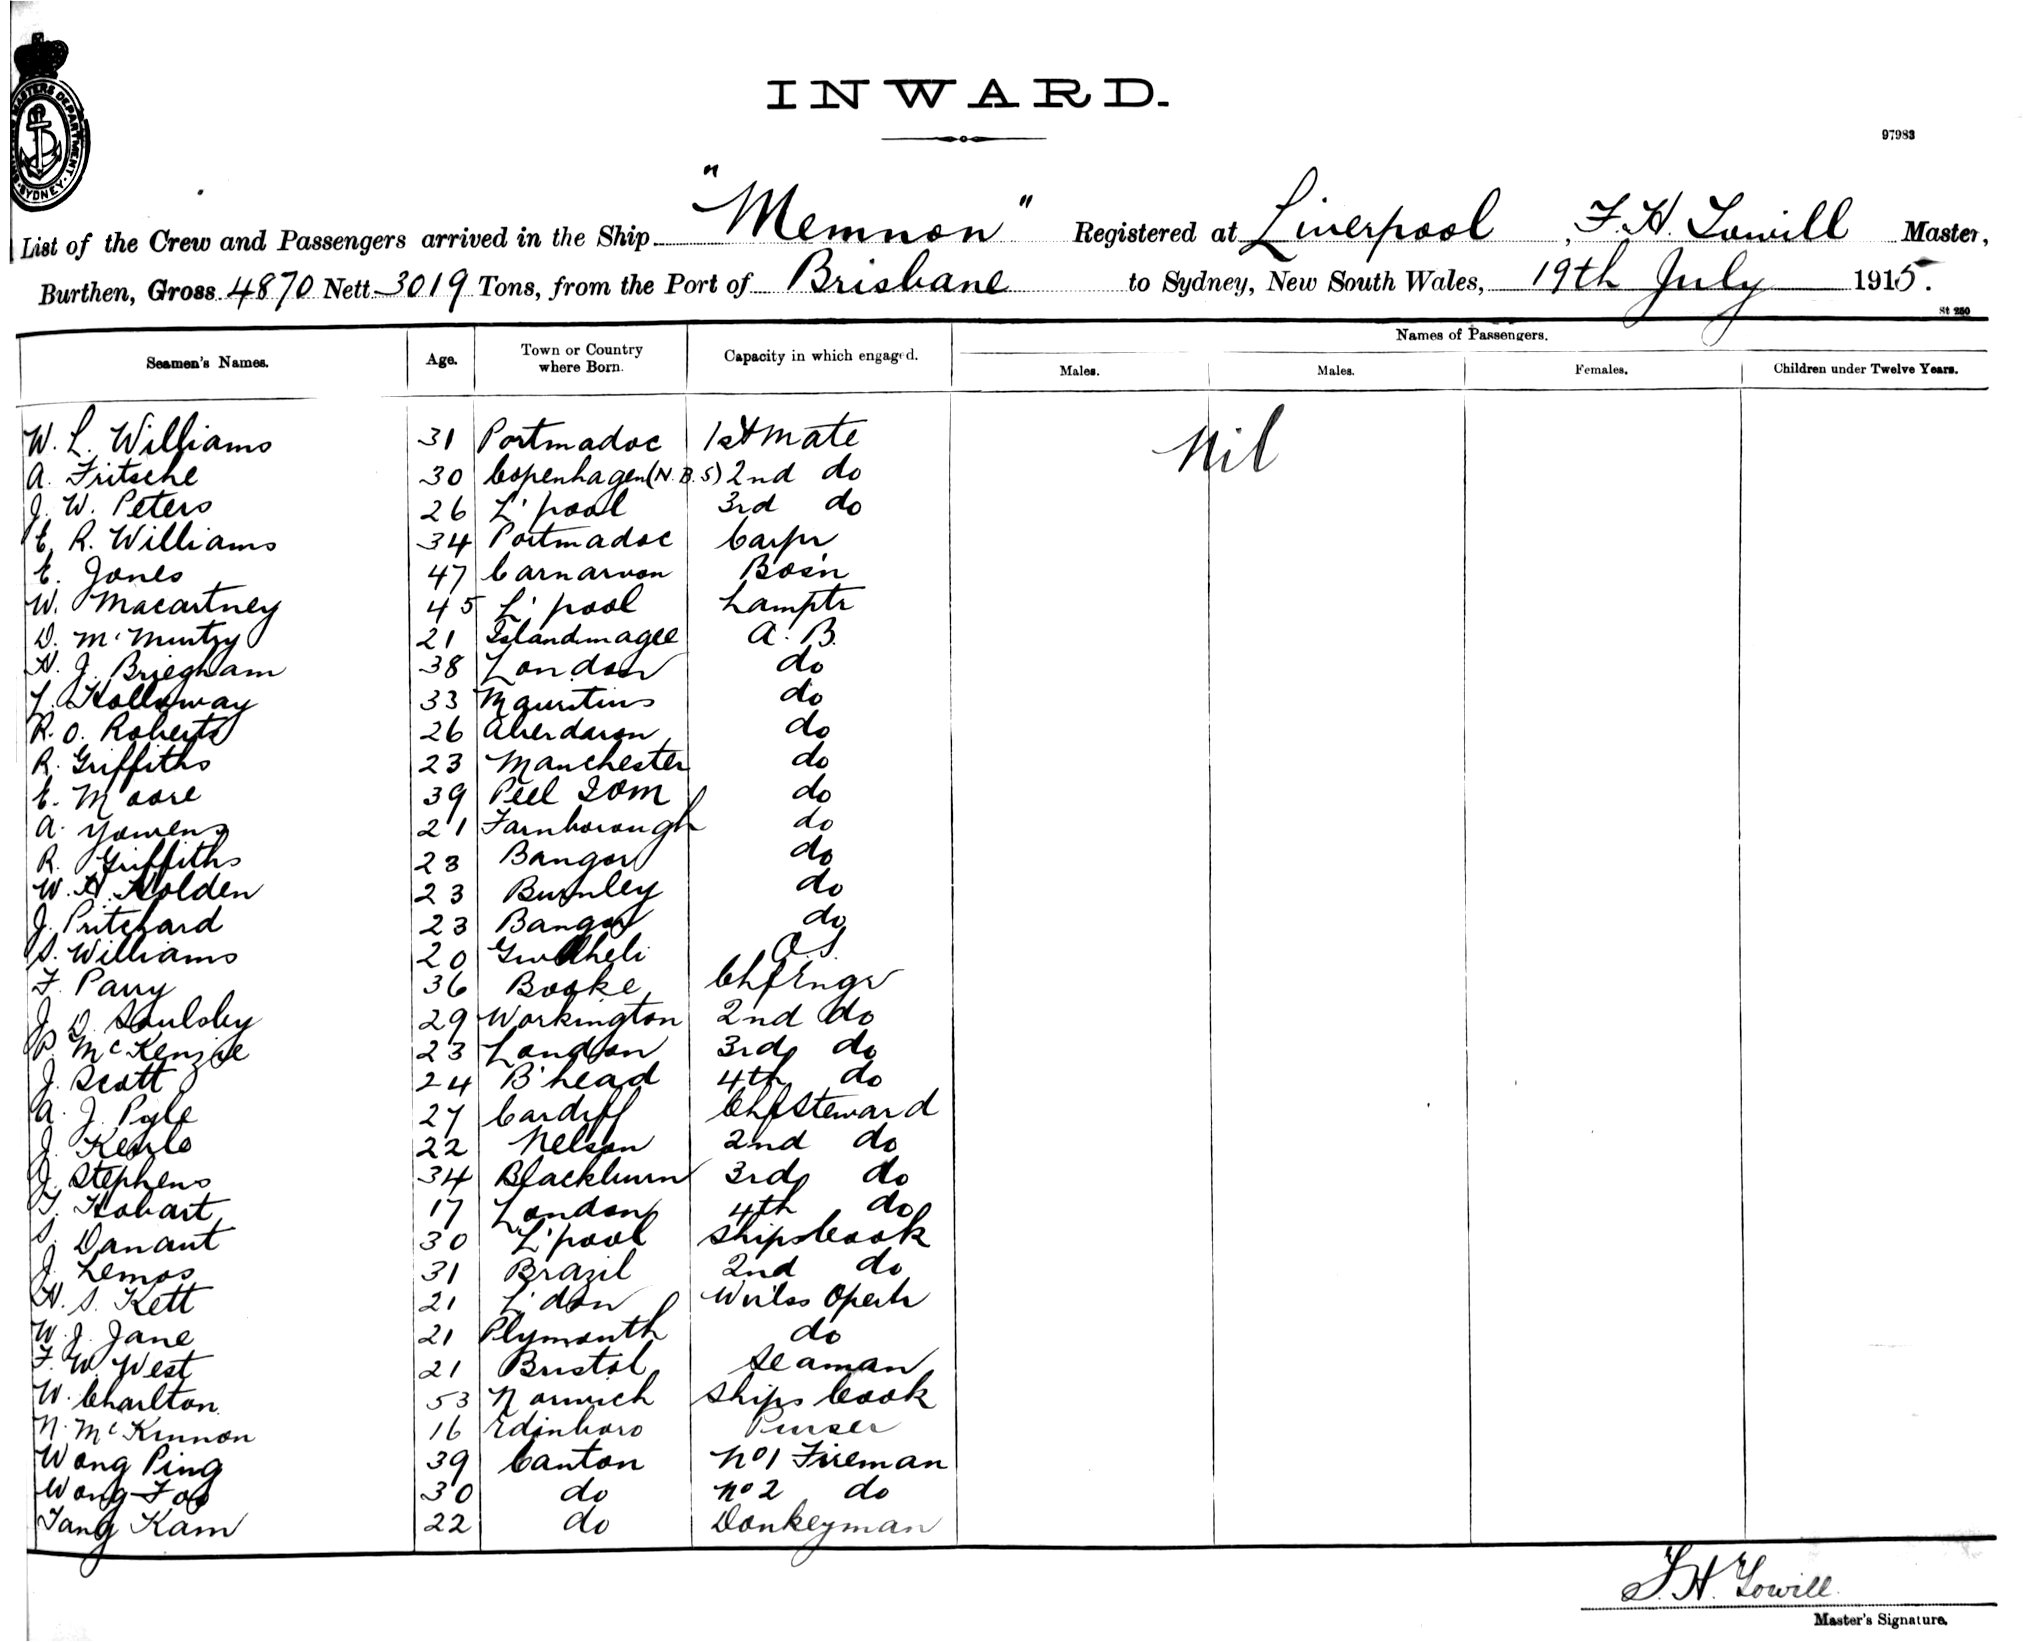 INWARD.
97983
MASTERS DEPARTMENT. SYDNEY
List of the Crew and Passengers arrived in the Ship "Memnon" Registered at Liverpool, F. H. Lowill Master,
Burthen, Gross 4870 Nett 3019 Tons, from the Port of Brisbane to Sydney, New South Wales, 19th July 1915.
St 250
Names of Passengers.
Seamen's Names. Age. Town or Country where Born. Capacity in which engaged. Males. Males. Females. Children under Twelve Years.
Nil
W. L. Williams 31 Portmadoc 1st Mate
A. Fritsche 30 Copenhagen (N.B.S) 2nd do
J. W. Peters 26 L'pool 3rd do
E. R. Williams 34 Portmadoc Carpr
E. Jones 47 Carnarvon Bos'n
W. Macartney 45 L'pool Lamptr
D. McMurtry 21 Islandmagee A. B.
H. J. Briegham 38 London do
L. Holloway 33 Mauritius do
R. O. Roberts 26 Aberdaron do
R. Griffiths 23 Manchester do
E. Moore 39 Peel IOM do
A. Yowens 21 Farnborough do
R. Griffiths 23 Bangor do
W. H. Holden 23 Burnley do
J. Pritchard 23 Bangor do
S. Williams 20 O.S.
F. Parry 36 Bootle Chf Engr
J. D. Soulsby 29 Workington 2nd do
P. McKenzie 23 London 3rd do
J. Scott 24 B'head 4th do
A. J. Pyle 27 Cardiff Chf Steward
J. 22 Nelson 2nd do
J. Stephens 34 Blackburn 3rd do
T. Hobart 17 London 4th do
S. Danaut 30 L'pool Ships Cook
J. Lemos 31 Brazil 2nd do
H. S. Kett 21 L'don Wirlss Opertr
W. J. Jane 21 Plymouth do
F. W. West 21 Bristol Seaman
W. Charlton 53 Norwich Ships Cook
N. McKinnon 16 Edinboro Purser
Wong Ping 39 Canton No 1 Fireman
Wong Foo 30 do No 2 do
Tang Kam 22 do Donkeyman
F. H. Lowill
Master's Signature.